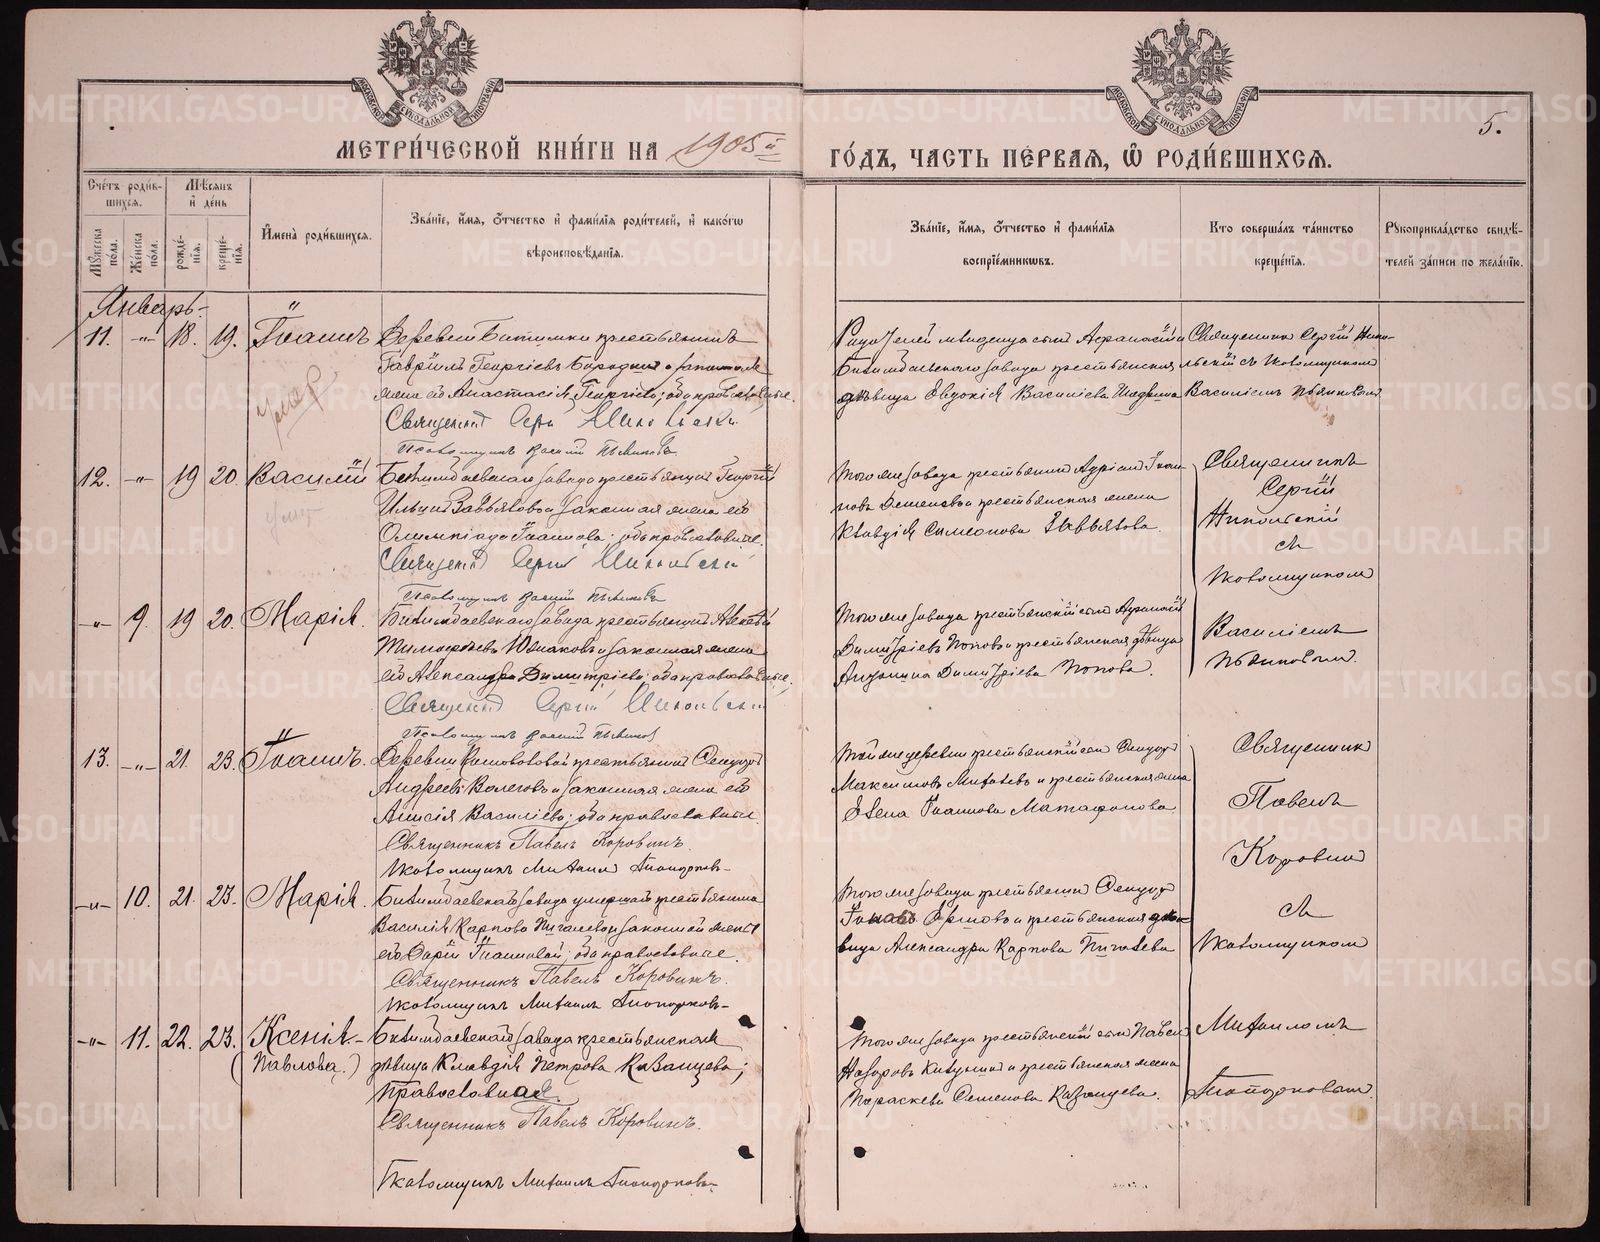 МЕТРИ́ЧЕСКОЙ КНИ́ГИ НА 1905й
ГО́ДЪ, ЧАСТЬ ПЕ́РВАѦ, Ѽ РОДИ́ВШИХСѦ.
5.
Сче́тъ роди́в-
шихсѧ.
Мѣсѧцъ
и҆ де́нь
Мꙋ́жеска по́ла.
Же́нска по́ла.
рожде́-
нїѧ.
креще́-
нїѧ.
И҆мена̀ роди́вшихсѧ.
Зва́нїе, и҆́мѧ, ѻ҆́тчество и҆ фами́лїѧ роди́телей, и҆ како́гѡ
вѣроисповѣ́данїѧ.
Зва́нїе, и҆́мѧ, ѻ҆́тчество и҆ фами́лїѧ
воспрїе́мникѡвъ.
Кто соверша́лъ та́инство
креще́нїѧ.
Рꙋкоприкла́дство свидѣ́-
телей за́писи по жела́нїю.
Январь-
11. -"- 18. 19. Іоаннъ
Деревни Битимки крестьянинъ
Гавріилъ Георгіевъ и законная
жена его Анастасія Георгіева; оба православные.
Священникъ Сергій Никольскій
Псаломщикъ Василій Пьянковъ
умер
Билимбаевскаго завода крестьянская
дѣвица Евдокія Василіева
Священникъ Сергій Нико-
льскій съ псаломщикомъ
Василіемъ Пьянковымъ
12. -"- 19 20. Василій
Билимбаевскаго завода крестьянинъ Георгій
Ильинъ Завьяловъ и законная жена его
Олимпіада Іоаннова; оба православные.
Священникъ Сергій Никольскій
Псаломщикъ Василій Пьянковъ
Того же завода крестьянинъ Адріанъ Іоан-
новъ Семеновъ и крестьянская жена
Клавдія Симеонова Завьялова.
Священникъ
Сергій
Никольскій
съ
псаломщикомъ
-"- 9. 19 20. Марія.
Билимбаевскаго завода крестьянинъ Алексѣй
Тимофѣевъ Южаковъ и законная жена
его Александра Димитріева; оба православные.
Священникъ Сергій Никольскій
Псаломщикъ Василій Пьянковъ
Того же завода крестьянскій сынъ
Димитріевъ Поповъ и крестьянская дѣвица
Димитріева Попова.
Василіемъ
Пьянковымъ.
13. -"- 21. 23. Іоаннъ.
Деревни крестьянинъ Ѳеодоръ
Андреевъ Волеговъ и законная жена его
Анисія Василіева; оба православные.
Священникъ Павелъ Коровинъ.
Псаломщикъ Михаилъ Топорковъ-
Той же деревни крестьянскій сынъ Ѳеодоръ
Максимовъ и крестьянская жена
Елена Іоаннова Матафонова
Священникъ
Павелъ
Коровинъ
-"- 10. 21. 23. Марія.
Билимбаевскаго завода умершаго крестьянина
Василія Карпова Пигалева и законной жены
его Дарьи Іоанновой; оба православные.
Священникъ Павелъ Коровинъ.
Псаломщикъ Михаилъ Топорковъ-
Того же завода крестьянинъ Ѳеодоръ
Ершовъ и крестьянская дѣ-
вица Александра Карпова Пигалева
съ
Псаломщикомъ
-"- 11. 22. 23. Ксенія-
(Павлова.)
Билимбаевскаго завода крестьянская
дѣвица Клавдія Петрова Казанцева;
Православная.
Священникъ Павелъ Коровинъ.
Псаломщикъ Михаилъ Топорковъ-
Того же завода крестьянскій сынъ Павелъ
Назаровъ и крестьянская жена
Параскева Семенова Казанцева.
Михаиломъ
Топорковымъ.
METRIKI.GASO-URAL.RU